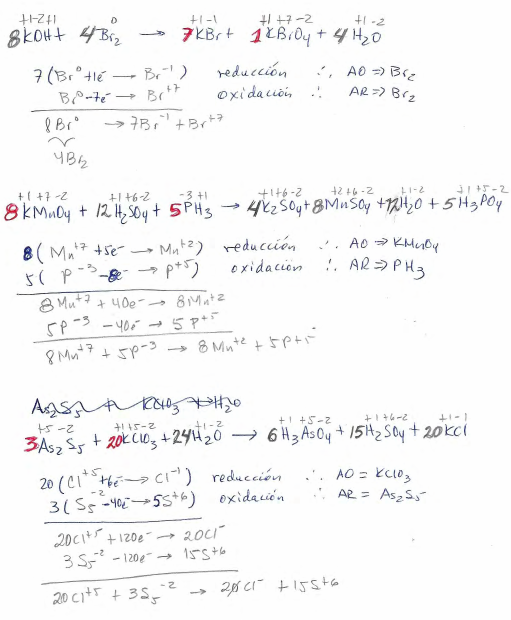 +1-2+1 0 +1-1 +1 +7-2 +1-2
8KOH + 4Br₂ → 7KBr + 1KBrO₄ + 4H₂O
7(Br⁰ +1e⁻ → Br⁻¹) reducción ∴ AO ⇒ Br₂
Br⁰ -7e⁻ → Br⁺⁷ oxidación ∴ AR ⇒ Br₂
8Br⁰ → 7Br⁻¹ + Br⁺⁷
4Br₂
+1 +7-2 +1+6-2 -3 +1 +1+6-2 +2+6-2 +1-2 +1+5-2
8KMnO₄ + 12H₂SO₄ + 5PH₃ → 4K₂SO₄ + 8MnSO₄ + 12H₂O + 5H₃PO₄
8(Mn⁺⁷ +5e⁻ → Mn⁺²) reducción ∴ AO ⇒ KMnO₄
5(P⁻³ -8e⁻ → P⁺⁵) oxidación ∴ AR ⇒ PH₃
8Mn⁺⁷ + 40e⁻ → 8Mn⁺²
5P⁻³ -40e⁻ → 5P⁺⁵
8Mn⁺⁷ + 5P⁻³ → 8Mn⁺² + 5P⁺⁵
As₂S₅ + KClO₃ + H₂O
+5 -2 +1+5-2 +1-2 +1 +5-2 +1+6-2 +1-1
3As₂S₅ + 20KClO₃ + 24H₂O → 6H₃AsO₄ + 15H₂SO₄ + 20KCl
20(Cl⁺⁵ +6e⁻ → Cl⁻¹) reducción ∴ AO = KClO₃
3(S₅⁻² -40e⁻ → 5S⁺⁶) oxidación ∴ AR = As₂S₅
20Cl⁺⁵ + 120e⁻ → 20Cl⁻
3S₅⁻² -120e⁻ → 15S⁺⁶
20Cl⁺⁵ + 3S₅⁻² → 20Cl⁻ + 15S⁺⁶